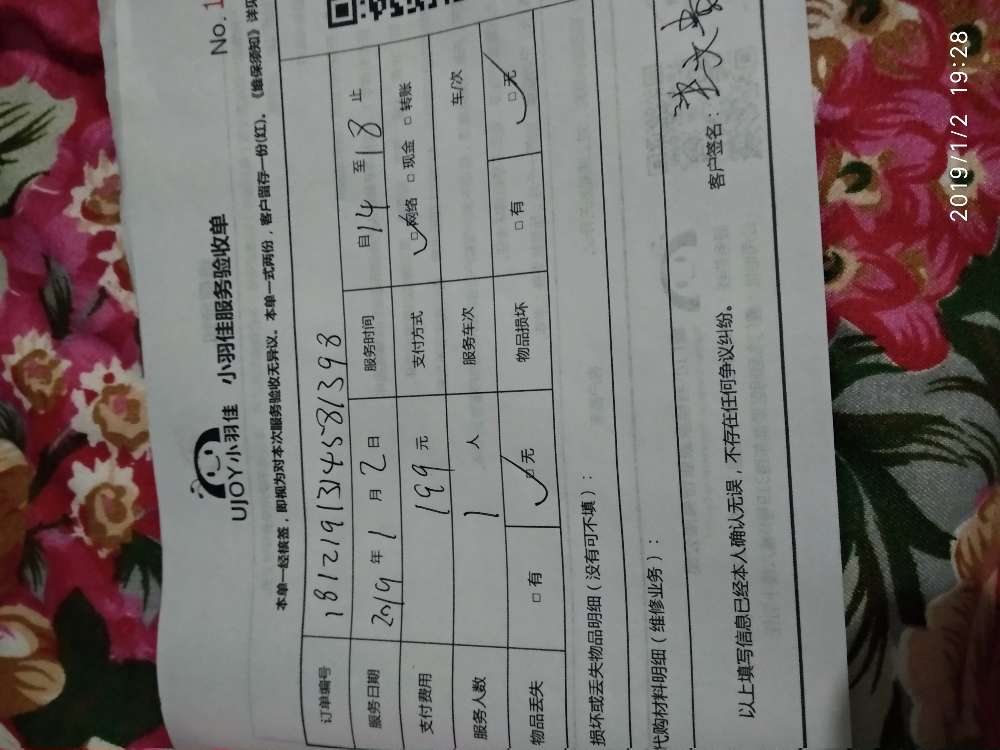 No. 1
UJOY小羽佳 小羽佳服务验收单
本单一经核签，即视为对本次服务验收无异议。本单一式两份，客户留存一份(红)。《维保须知》详见
订单编号 181219131458139 8
服务日期 2019年1月2日 服务时间 自14至18止
支付费用 199元 支付方式 □网络 □现金 □转账
服务人数 1人 服务车次 车/次
物品丢失 □有 □无 物品损坏 □有 □无
损坏或丢失物品明细（没有可不填）：
代购材料明细（维修业务）：
以上填写信息已经本人确认无误，不存在任何争议纠纷。 客户签名：
2019/1/2 19:28